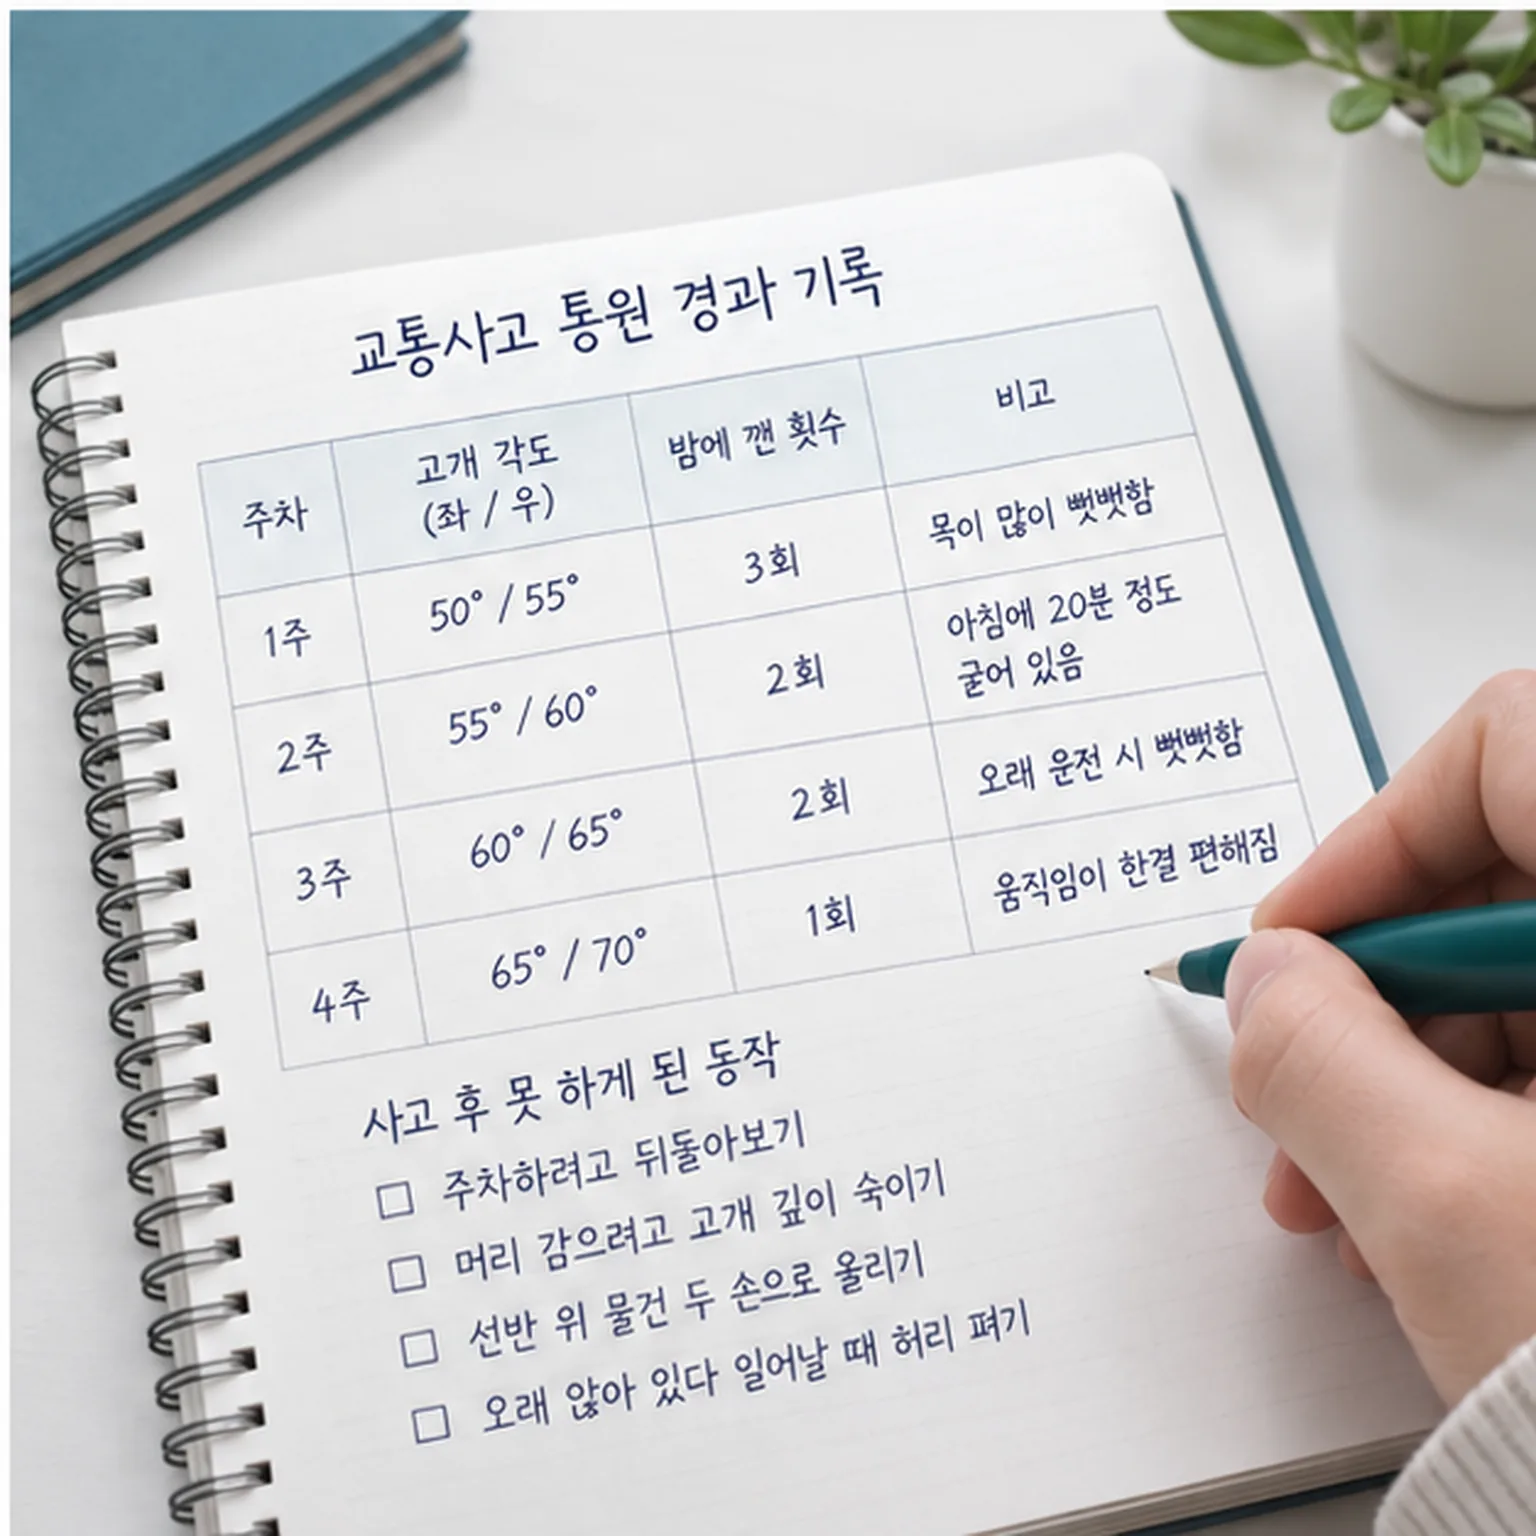 교통사고 통원 경과 기록
주차
고개 각도
(좌 / 우)
밤에 깬 횟수
비고
1주
50° / 55°
3회
목이 많이 뻣뻣함
2주
55° / 60°
2회
아침에 20분 정도
굳어 있음
3주
60° / 65°
2회
오래 운전 시 뻣뻣함
4주
65° / 70°
1회
움직임이 한결 편해짐
사고 후 못 하게 된 동작
□ 주차하려고 뒤돌아보기
□ 머리 감으려고 고개 깊이 숙이기
□ 선반 위 물건 두 손으로 올리기
□ 오래 앉아 있다 일어날 때 허리 펴기